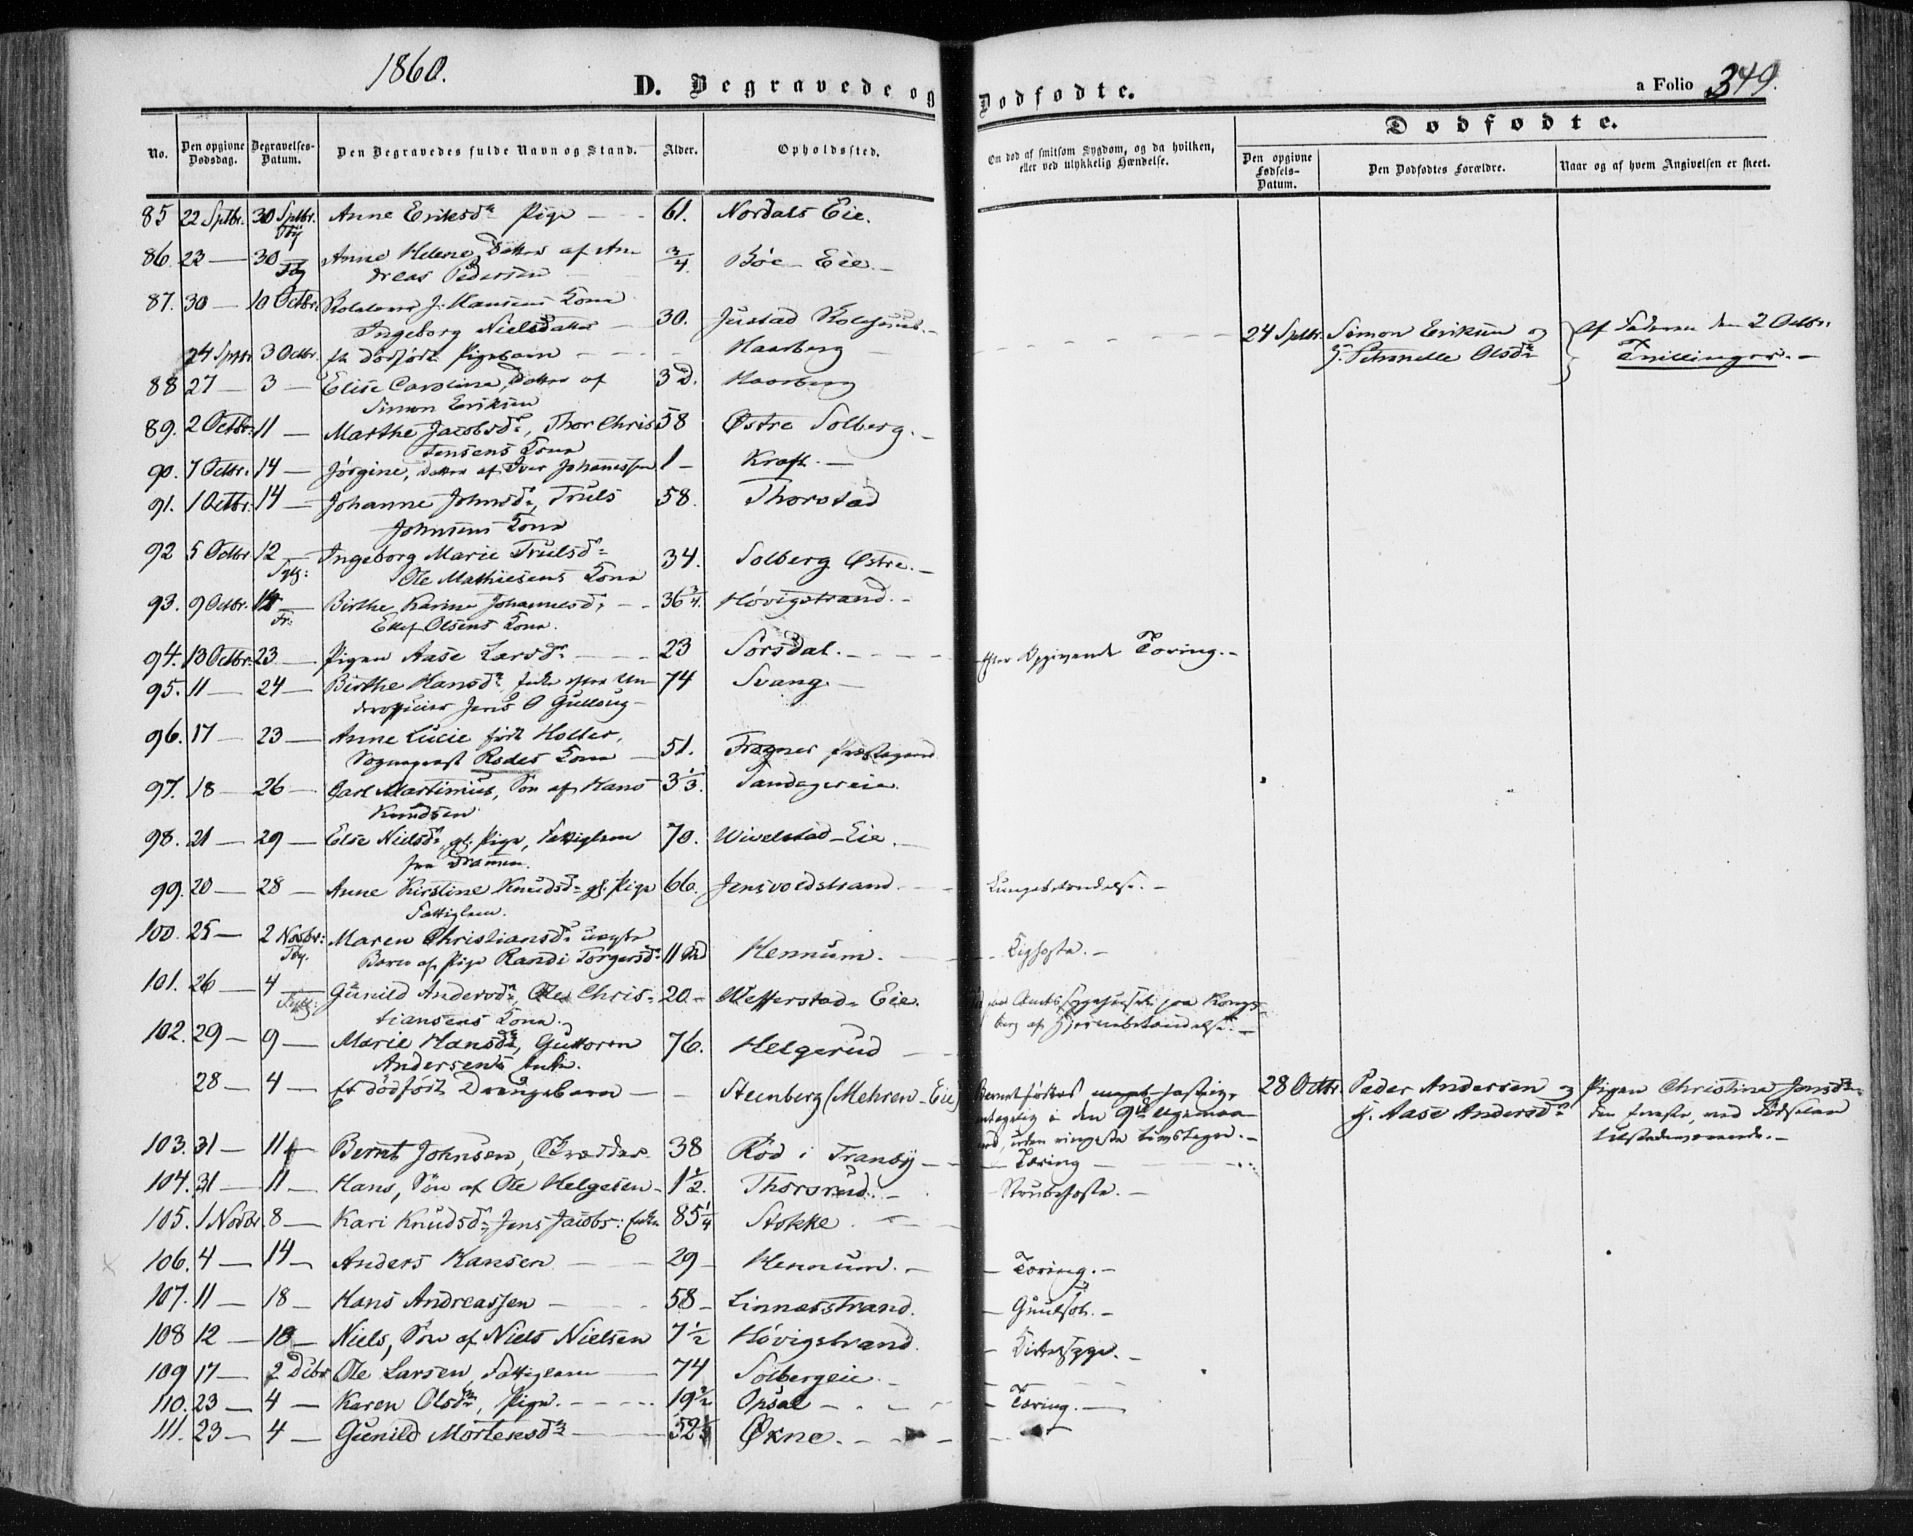 1860.
D. Begravede og Dødfødte.
a Folio 349.
No.
Den opgivne Dødsdag.
Begravelses-Datum.
Den Begravedes fulde Navn og Stand.
Alder.
Opholdssted.
Om død af smitsom Sygdom, og da hvilken,
eller ved ulykkelig Hændelse.
Dødfødte.
Den opgivne Fødsels-Datum.
Den Dødfødtes Forældre.
Naar og af hvem Angivelsen er skeet.
85 22 Sptbr. 30 Sptbr. Anne Eriksdr Pige 61. Nordals Eie.
86. 23 — 30 — Anne Helene, Datter af An-
dreas Pedersen 3/4. Böe - Eie. -
87. 30 — 10 Octbr. J. Hansens Kone
Ingeborg Nielsdatter 30. Justad
24 Sptbr 3 Octbr. et dödfödt Pigebarn Haarberg 24 Sptbr. Simon Eriksen og Af Faderen den 2 Octbr.
H. Petronelle Olsdr Tvillinger. -
88 27 — 3 — Elise Caroline, Datter af 3 D. Haarberg
Simon Eriksen
89. 2 Octbr. 11 — Marthe Jacobsdr, Thor Chris 58 Østre Solberg. -
tensens Kone
90. 7 Octbr. 14 — Jörgine, Datter af Iver Johannessen 1 - Kraft. -
91. 1 Octbr. 14 — Johanne Johnsdr, Truls 58. Thorstad
Johnsens Kone
92 5 Octbr 12 — Ingeborg Marie Trulsdr 34. Solberg Østre. -
Ole Mathiesens Kone
93. 9 Octbr. 14 — Birthe Karine Johannesdr 36 3/4. Hövigstrand. -
Ellef Olsens Kone.
94. 13 Octbr. 23 — Pigen Aase Larsdr 23 Sorsdal. - Efter Opgivende Tæring. -
95. 11 — 24 — Birthe Hansdr Enke efter Un- 74 Svang. -
derofficier Jens O Gulloug -
96. 17 — 23 — Anne Lucie födt Holter,
Sogneprest Rodes Kone 51. Frogner Præstegaard
97. 18 — 26 — Carl Martinius, Sön af Hans 3 1/3. Sandagereie.
Knudsen
98. 21 — 29 — Else Nielsdr, gl. Pige, Fattiglem 70. Wivelstad-Eie.
fra Drammen.
99. 20 — 28 — Anne Kirstine Knudsdr gl. Pige 66. Jensvoldstrand. Lungebetændelse. -
Fattiglem.
100. 25 — 2 Novbr: Maren Christiansdr uægte
Barn af Pige Randi Torgersdr 11 Md Hennum. Kighoste. -
101. 26 — 4 — Gunild Andersdr, Ole Chris- 20. - Wefferstad-Eie. paa Amtssygehuset paa Kongs-
tiansens Kone. berg af Hjernebetændelse. -
102. 29 — 9 — Marie Hansdr, Guttorm 76. Helgerud
Andersens Enke.
28 — 4 — Et dödfödt Drengebarn Steenberg (Mehren-Eie) Barnet födtes 28 Octbr. Peder Andersen og Pigen Christine Jensdr
i den 9de H. Aase Andersdr ved Födselen
uden ringeste Livstegn. - tilstedeværende. -
103. 31 — 11 — Bernt Johnsen, 38 Röd i Tranby Tæring
104. 31 — 11 — Hans, Sön af Ole Helgesen 1 1/2. Thorsrud. - Strubehoste. -
105. 1 Novbr 8 — Kari Knudsdr Jens Jacobs: Enke 85 1/4 Stokke
106. 4 — 14 — Anders Hansen 29 - Hennum. - Tæring. -
107. 11 — 18 — Hans Andreassen 58 - Linnæsstrand. Guulsot. -
108 12 — 18 — Niels, Sön af Niels Nielsen 7 1/2 Hövigstrand. Kirtelsyge. -
109 17 — 2 Dcbr Ole Larsen, Fattiglem 74 Solbergeie. -
110. 23 — 4 — Karen Olsdr, Pige. 19 1/2 Opsal - Tæring. —
111. 23 — 4 — Gunild Mortensdr Økne. -